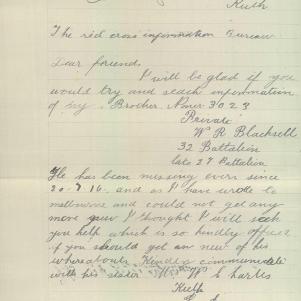 The red cross information Bureau
Dear freind.
I will be glad if you
would try and seach infermation
of my Brother. No 3023
Private
W R Blacksell
32 Battalion
late 27 Battalion
He has been missing ever since
20.7.16. and as I have wrote to
melbourne and could not get any
more I thought I will seek
you help which is so kindly offer
if you should get an new of his
whereabouts Kindly communicate
with his sister W Charles